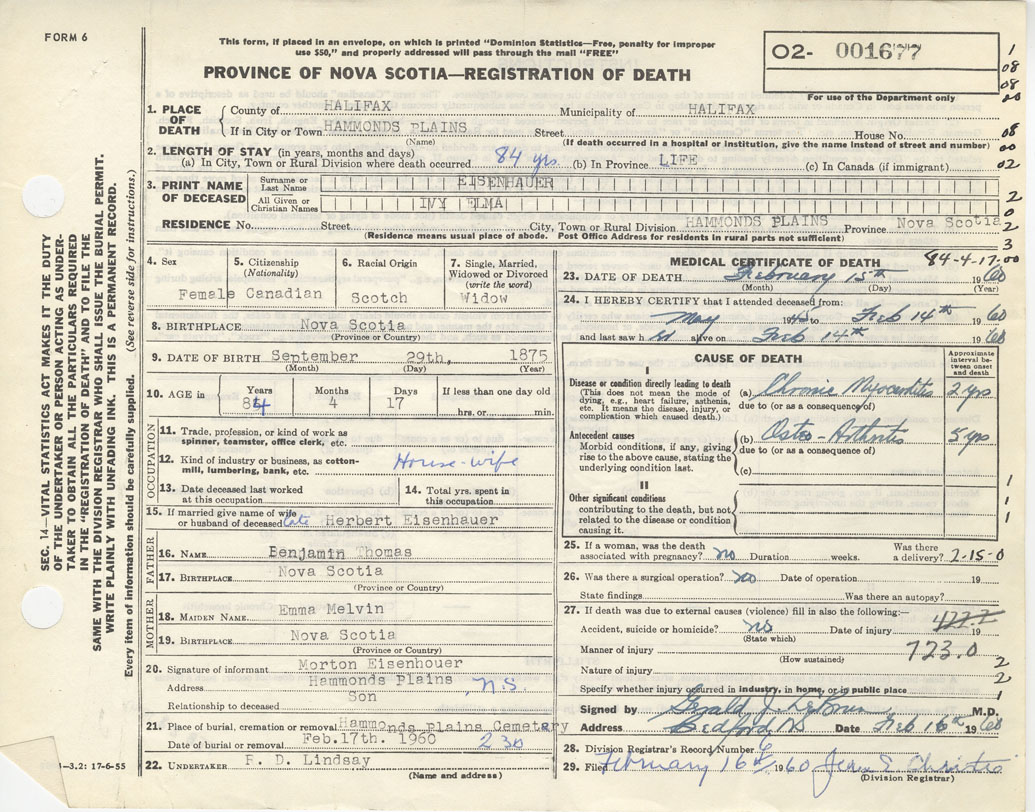 FORM 6
This form, if placed in an envelope, on which is printed "Dominion Statistics—Free, penalty for improper
use $50," and properly addressed will pass through the mail "FREE"
PROVINCE OF NOVA SCOTIA—REGISTRATION OF DEATH
02- 001677
For use of the Department only
1
08
08
00
08
00
02
2
0
2
3
SEC. 14—VITAL STATISTICS ACT MAKES IT THE DUTY
OF THE UNDERTAKER OR PERSON ACTING AS UNDER-
TAKER TO OBTAIN ALL THE PARTICULARS REQUIRED
IN THE "REGISTRATION OF DEATH" AND TO FILE THE
SAME WITH THE DIVISION REGISTRAR WHO SHALL ISSUE THE BURIAL PERMIT.
WRITE PLAINLY WITH UNFADING INK. THIS IS A PERMANENT RECORD.
Every item of information should be carefully supplied. (See reverse side for instructions.)
1. PLACE OF DEATH
County of HALIFAX Municipality of HALIFAX
If in City or Town HAMMONDS PLAINS Street House No.
(Name) (If death occurred in a hospital or institution, give the name instead of street and number)
2. LENGTH OF STAY (in years, months and days)
(a) In City, Town or Rural Division where death occurred 84 yrs. (b) In Province LIFE (c) In Canada (if immigrant)
3. PRINT NAME OF DECEASED
Surname or Last Name EISENHAUER
All Given or Christian Names IVY ELMA
RESIDENCE No. Street City, Town or Rural Division HAMMONDS PLAINS Province Nova Scotia
(Residence means usual place of abode. Post Office Address for residents in rural parts not sufficient)
4. Sex
Female
5. Citizenship
(Nationality)
Canadian
6. Racial Origin
Scotch
7. Single, Married, Widowed or Divorced
(write the word)
Widow
8. BIRTHPLACE Nova Scotia
(Province or Country)
9. DATE OF BIRTH September 29th, 1875
(Month) (Day) (Year)
10. AGE in Years Months Days If less than one day old
84 4 17 hrs. or min.
OCCUPATION
11. Trade, profession, or kind of work as
spinner, teamster, office clerk, etc.
12. Kind of industry or business, as cotton-
mill, lumbering, bank, etc. House-wife
13. Date deceased last worked
at this occupation
14. Total yrs. spent in
this occupation
15. If married give name of wife
or husband of deceased late Herbert Eisenhauer
FATHER
16. NAME Benjamin Thomas
17. BIRTHPLACE Nova Scotia
(Province or Country)
MOTHER
18. MAIDEN NAME Emma Melvin
19. BIRTHPLACE Nova Scotia
(Province or Country)
20. Signature of informant Morton Eisenhouer
Address Hammonds Plains N.S.
Relationship to deceased Son
21. Place of burial, cremation or removal Hammonds Plains Cemetary
Date of burial or removal Feb.17th. 1960 2 30
22. UNDERTAKER F. D. Lindsay
(Name and address)
-3.2: 17-6-55
MEDICAL CERTIFICATE OF DEATH
84-4-17-00
23. DATE OF DEATH February 15th 1960
(Month) (Day) (Year)
24. I HEREBY CERTIFY that I attended deceased from:
May to Feb 14th 1960
and last saw h alive on Feb 14th 1960
CAUSE OF DEATH
Approximate interval be- tween onset and death
I
Disease or condition directly leading to death
(This does not mean the mode of
dying, e.g., heart failure, asthenia,
etc. It means the disease, injury, or
complication which caused death.)
(a) Chronic Myocarditis 2 yrs
due to (or as a consequence of)
Antecedent causes
Morbid conditions, if any, giving
rise to the above cause, stating the
underlying condition last.
(b) Osteo-Arthritis 5 yrs
due to (or as a consequence of)
(c)
II
Other significant conditions
contributing to the death, but not
related to the disease or condition
causing it.
1
1
25. If a woman, was the death
associated with pregnancy? no Duration weeks. Was there a delivery? 2-15-0
26. Was there a surgical operation? no Date of operation 19
State findings Was there an autopsy?
27. If death was due to external causes (violence) fill in also the following:—
Accident, suicide or homicide? no Date of injury 19
(State which)
Manner of injury 723.0
(How sustained)
Nature of injury
2
2
Specify whether injury occurred in industry, in home, or in public place 1
Signed by Gerald J. M.D.
Address Bedford NS Date Feb 16th 1960
28. Division Registrar's Record Number 6
29. Filed February 16th 1960 Jean E Christie
(Division Registrar)